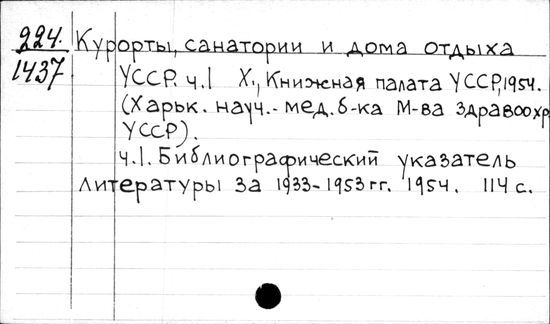 224.
1437
Курорты, санатории и дома отдыха
УССР. ч.1 Х., Книжная палата УССР, 1954.
(Харьк. науч.-мед. б-ка М-ва здравоохр.
УССР).
ч.1. Библиографический указатель
литературы за 1933-1953 гг. 1954. 114 с.